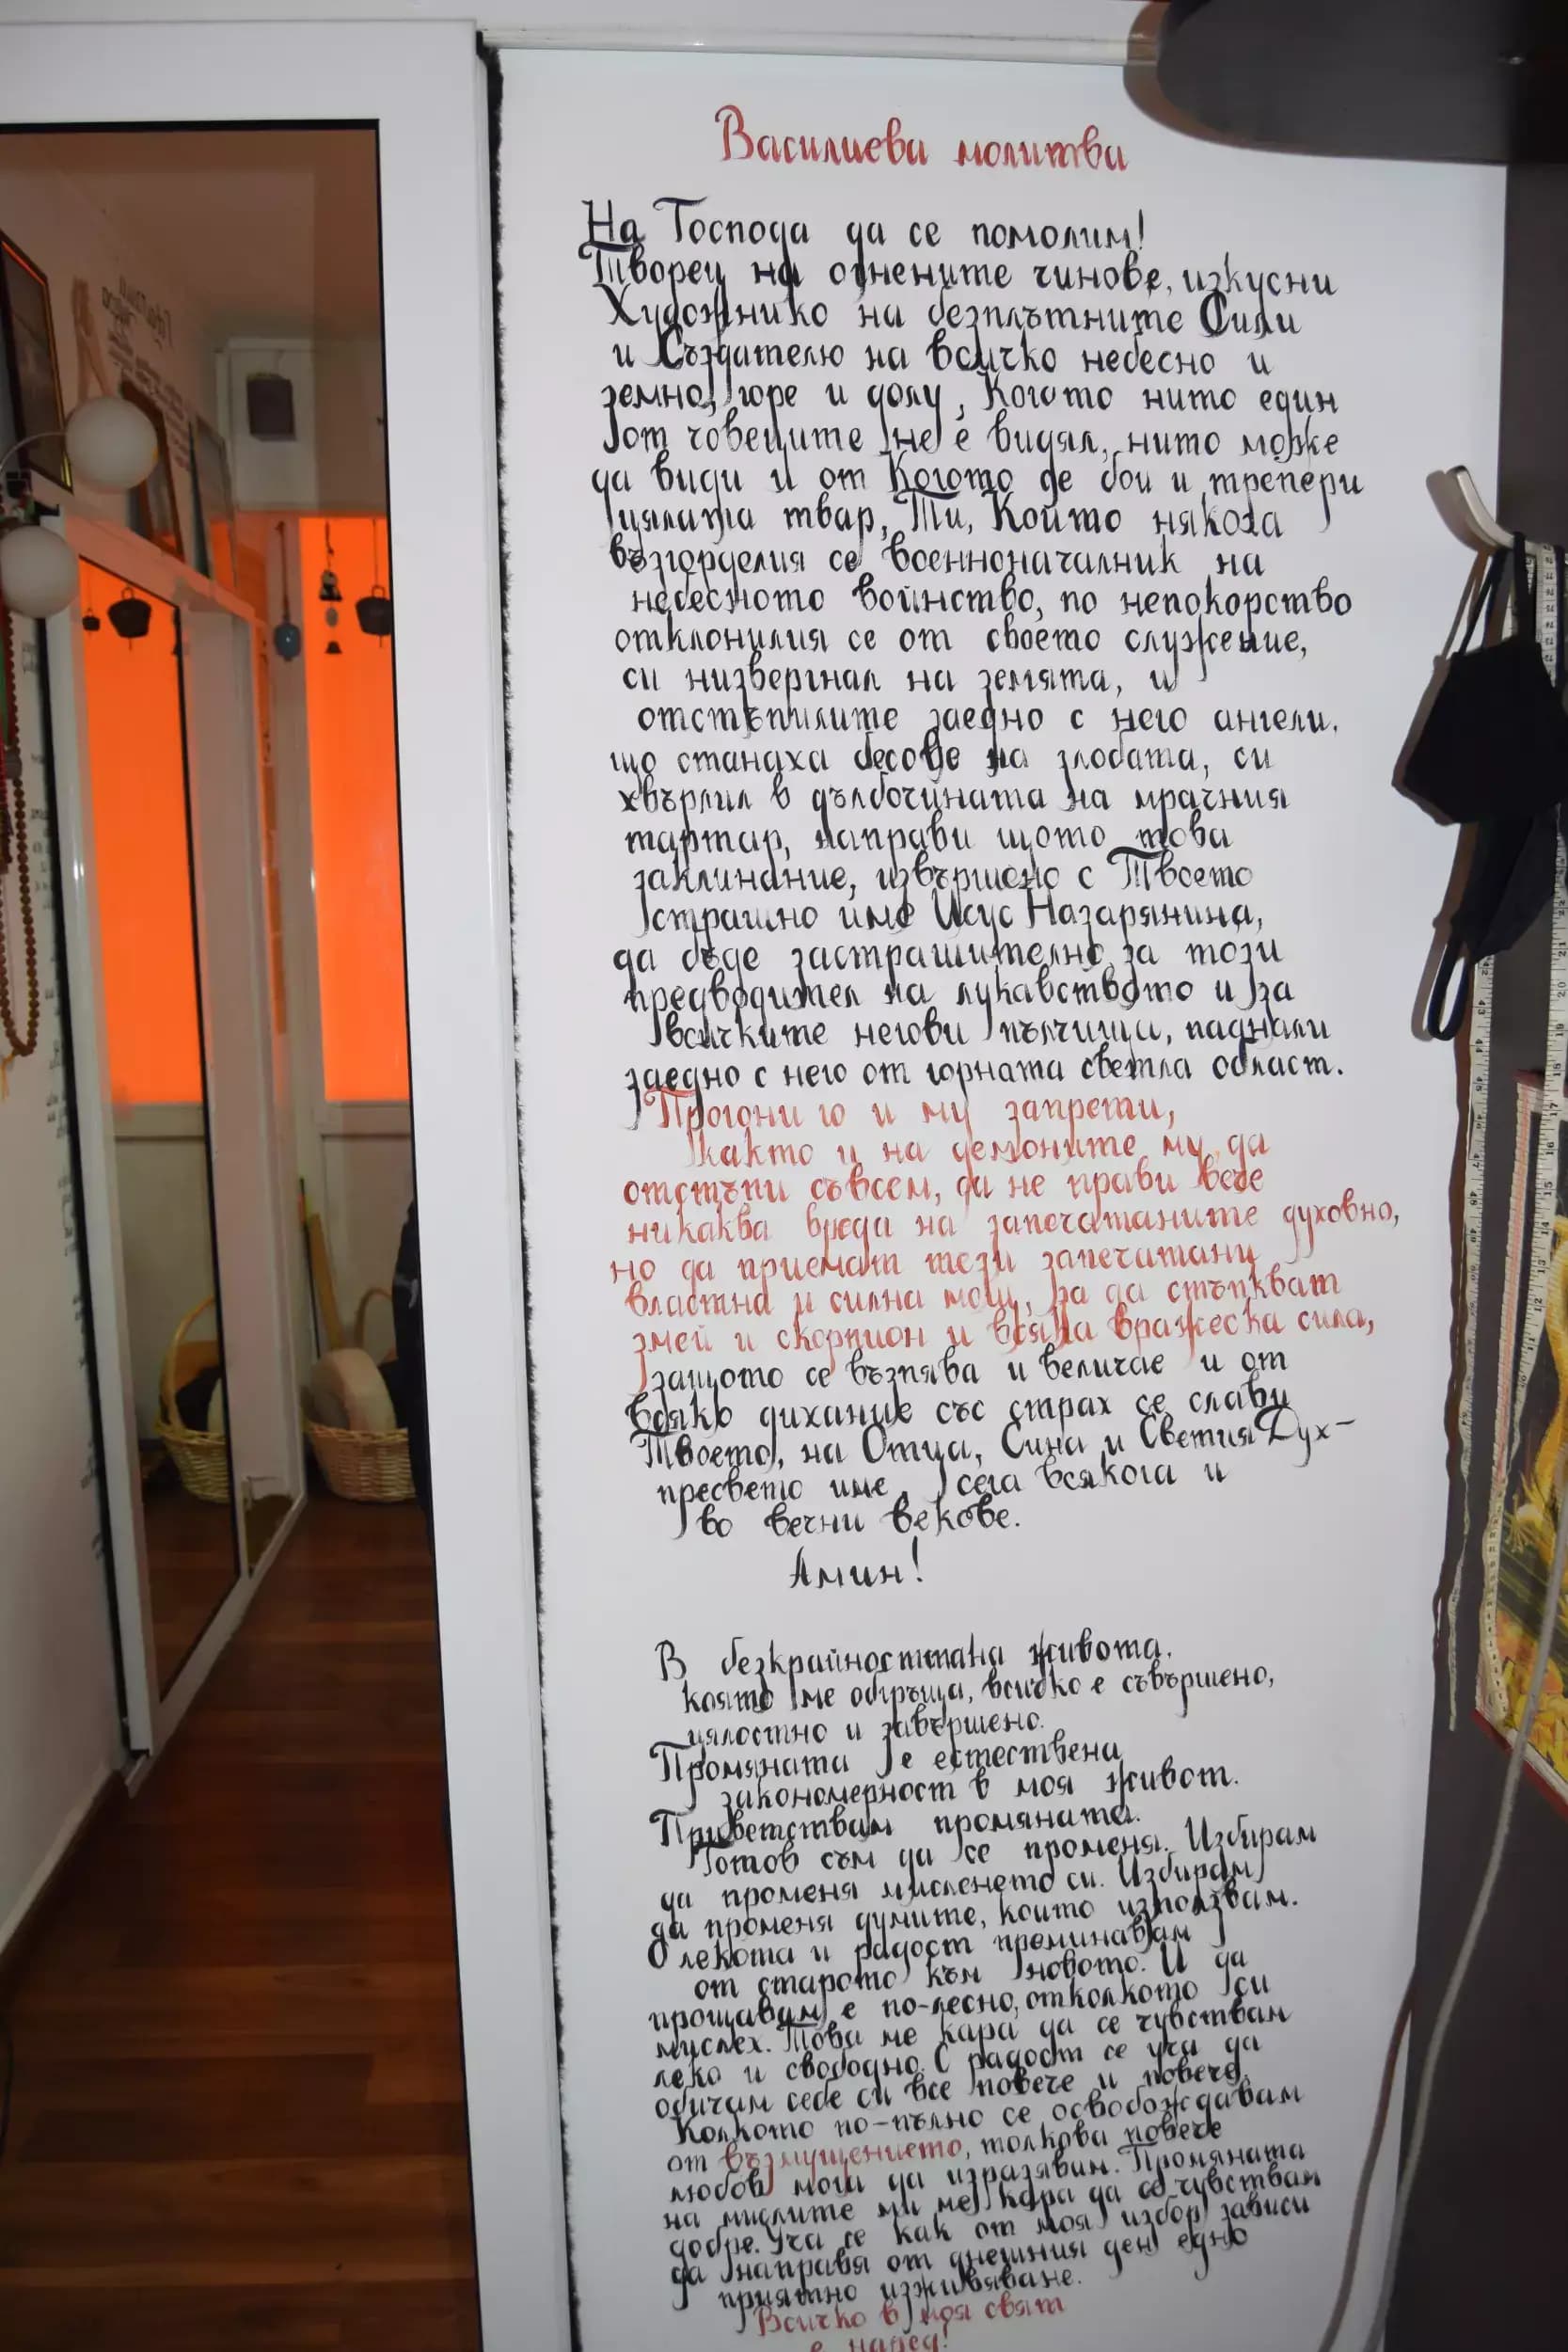 Василиева молитва
На Господа да се помолим!
Творец на огнените чинове, изкусни
Художнико на безплътните Сили
и Създателю на всичко небесно и
земно, горе и долу, Когото нито един
от човеците не е видял, нито може
да види и от Когото де бои и трепери
цялата твар, Ти, Който някога
възгорделия се военноначалник на
небесното войнство, по непокорство
отклонилия се от своето служение,
си низвергнал на земята, и
отстъпилите заедно с него ангели,
що станаха бесове на злобата, си
хвърлил в дълбочината на мрачния
тартар, направи щото това
заклинание, извършено с Твоето
страшно име Исус Назарянина,
да бъде застрашително за този
предводител на лукавството и за
всичките негови пълчища, паднали
заедно с него от горната светла област.
Прогони го и му запрети,
както и на демоните му да
отстъпи съвсем, да не прави вече
никаква вреда на запечатаните духовно,
но да приемат тези запечатани
властна и силна мощ, за да стъпкват
змей и скорпион и всяка вражеска сила,
защото се възпява и величае и от
всяко дихание със страх се слави
Твоето, на Отца, Сина и Светия Дух-
пресвето име, сега всякога и
во вечни векове.
Амин!
В безкрайносттана живота,
която ме обгръща, всичко е съвършено,
цялостно и завършено.
Промяната е естествена
закономерност в моя живот.
Приветствам промяната.
Готов съм да се променя. Избирам
да променя мисленето си. Избирам
да променя думите, които използвам.
С лекота и радост преминавам
от старото към новото. И да
прощавам е по-лесно, отколкото си
мислех. Това ме кара да се чувствам
леко и свободно. С радост се уча да
обичам себе си все повече и повече.
Колкото по-пълно се освобождавам
от възмущението, толкова повече
любов мога да изразявам. Промяната
на мислите ми ме кара да се чувствам
добре. Уча се как от моя избор зависи
да направя от днешния ден едно
приятно изживяване.
Всичко в моя свят
е наред!